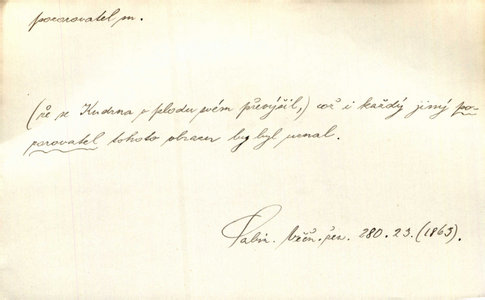 pozorovatel m.
(že se Kudrna v plodu svém převýšil,) což i každý jiný po-
zorovatel tohoto obrazu by byl uznal.
Pabir. Věčn. pen. 280. 23. (1863).